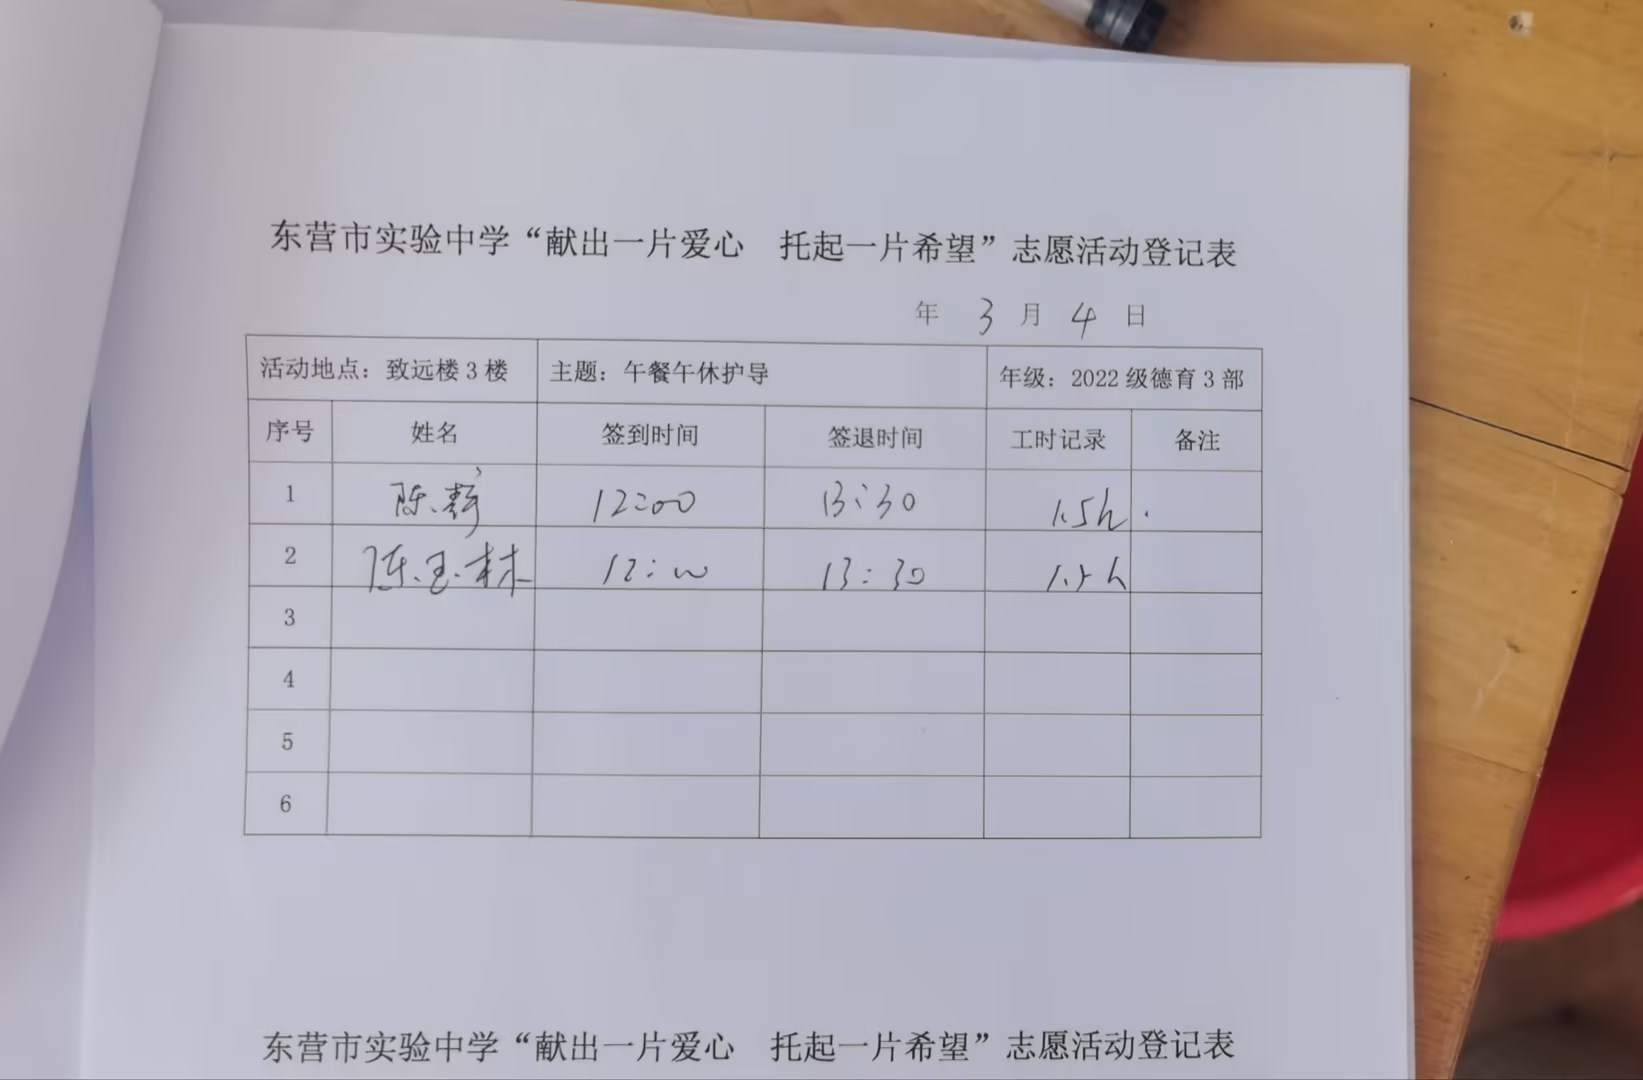 东营市实验中学“献出一片爱心　托起一片希望”志愿活动登记表
年 3 月 4 日
活动地点：致远楼3楼 主题：午餐午休护导 年级：2022级德育3部
序号 姓名 签到时间 签退时间 工时记录 备注
1 陈 12:00 13:30 1.5h
2 陈玉林 12:00 13:30 1.5h
3
4
5
6
东营市实验中学“献出一片爱心　托起一片希望”志愿活动登记表